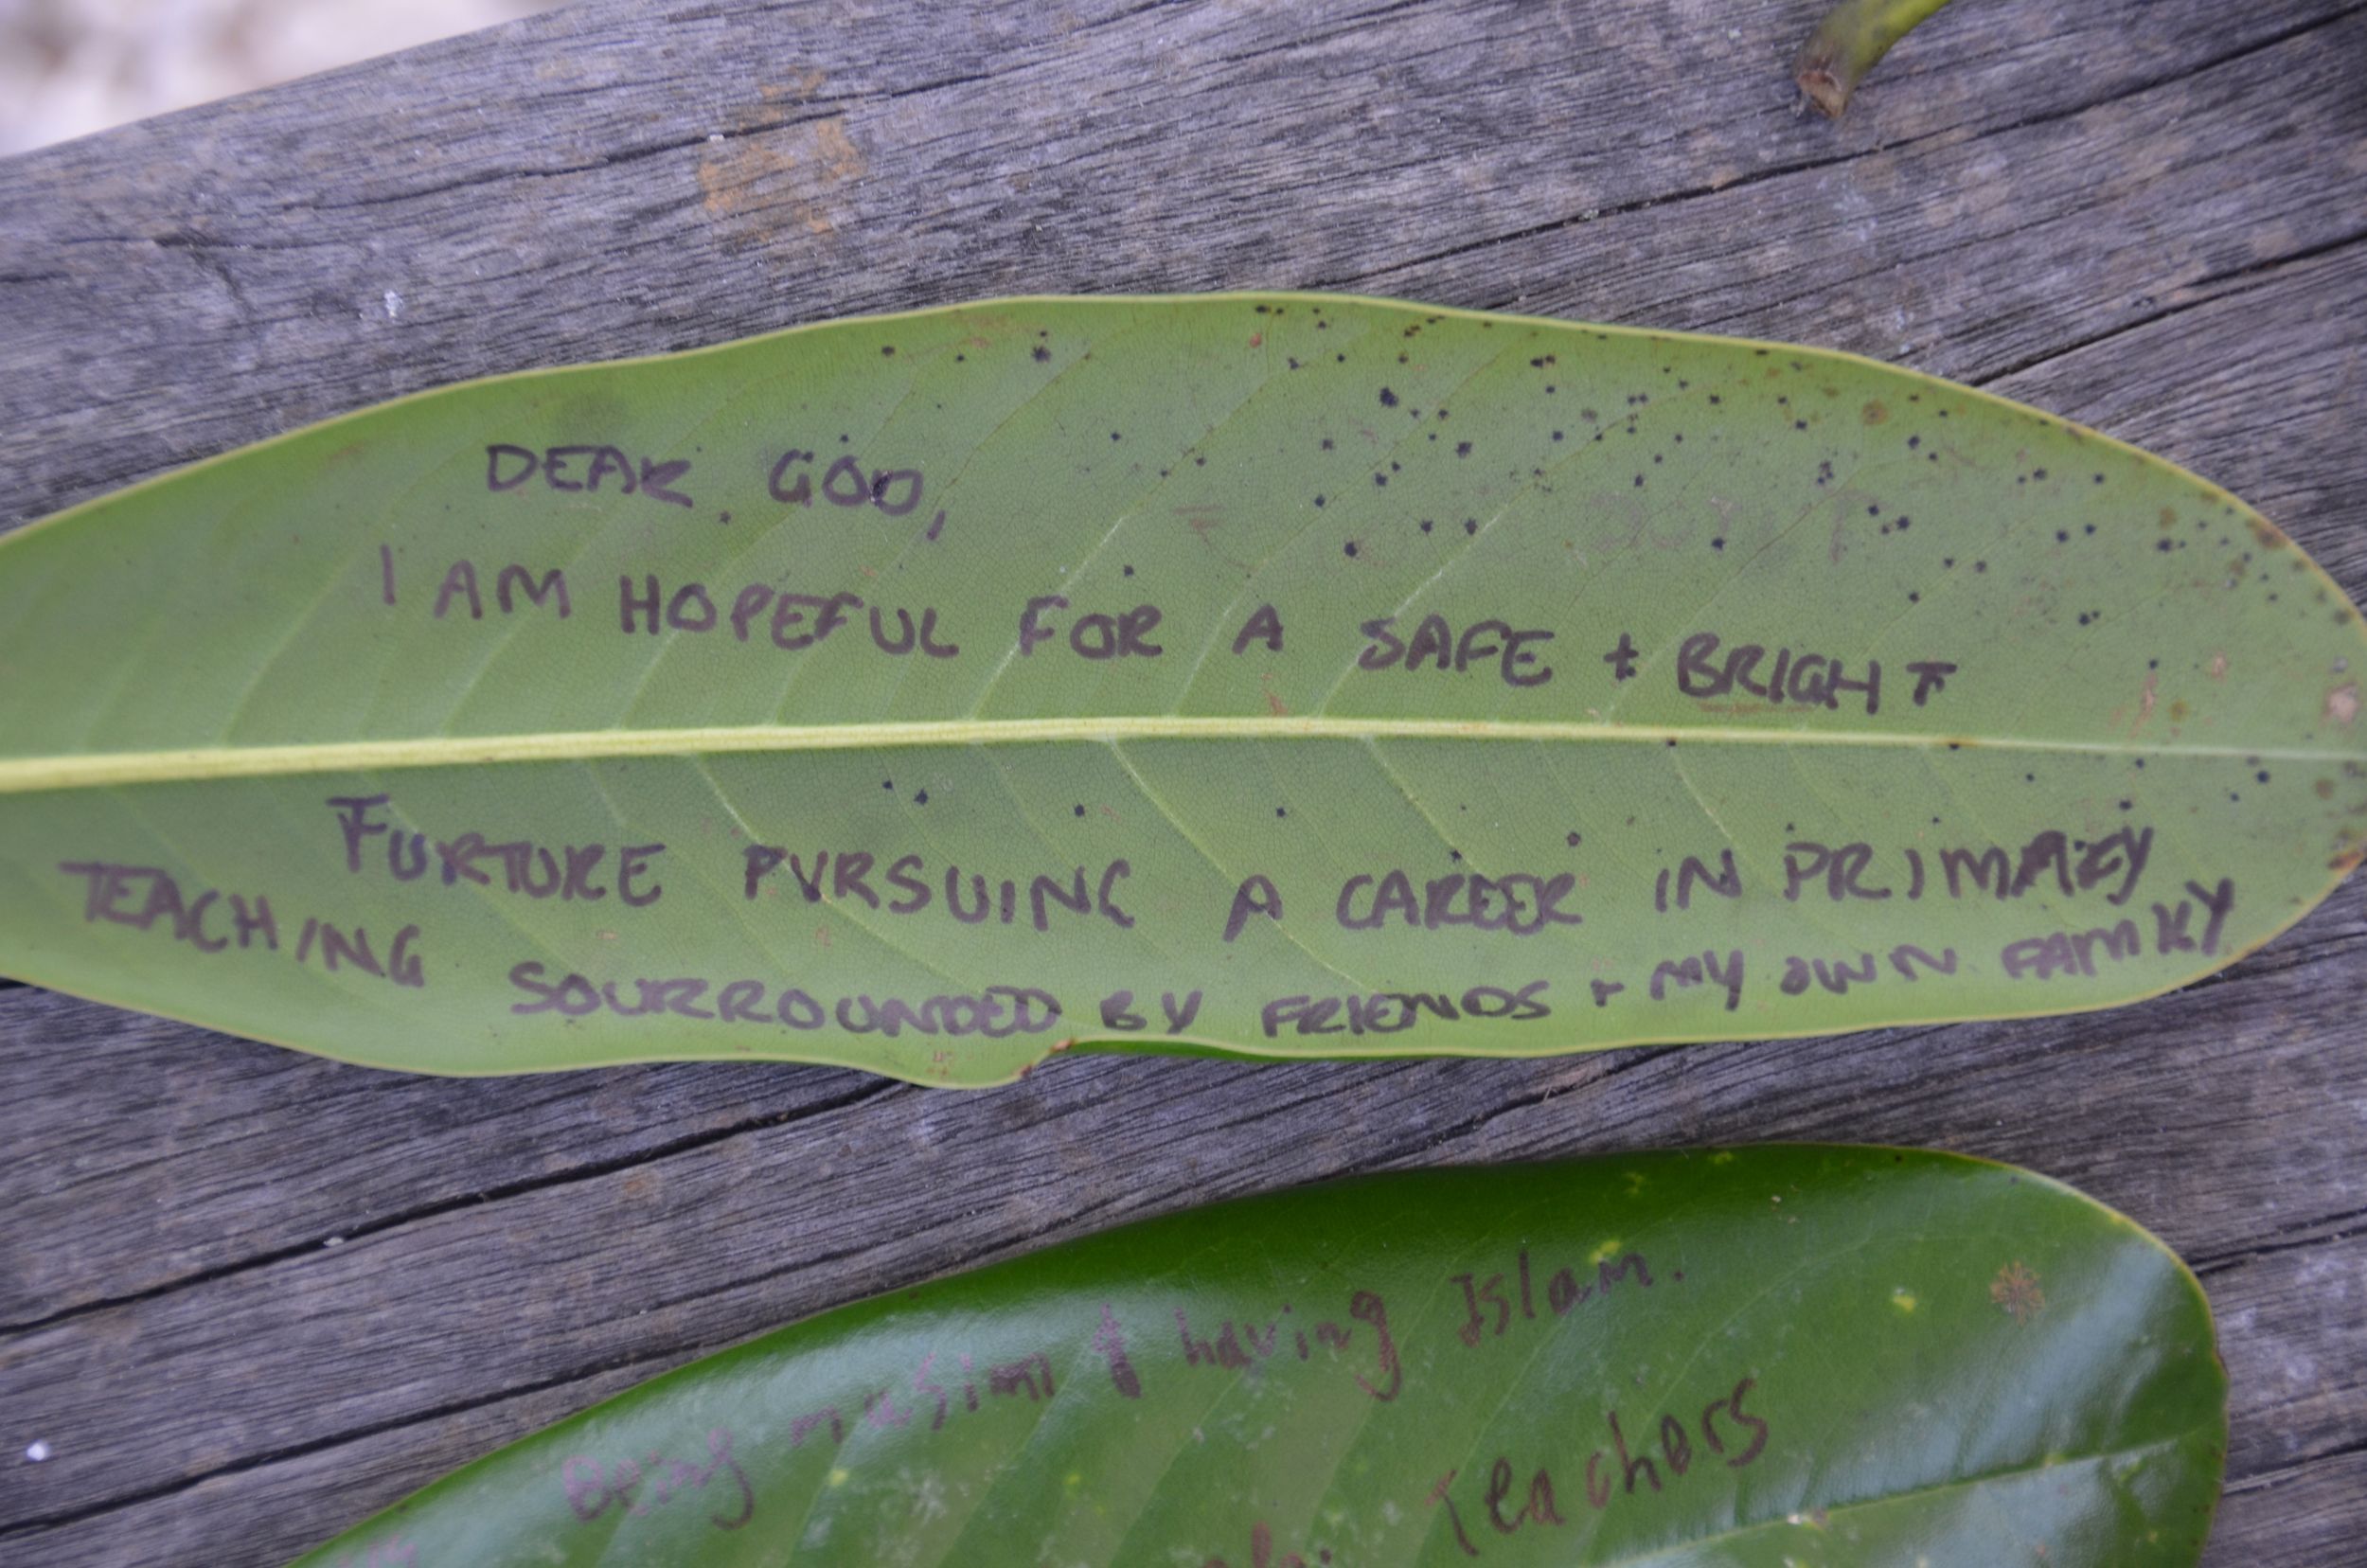 DEAR GOD,
I AM HOPEFUL FOR A SAFE + BRIGHT
FURTURE PURSUING A CAREER IN PRIMARY
TEACHING SOURROUNDED BY FRIENDS + MY OWN FAMILY
Being muslim & having Islam.
Teachers